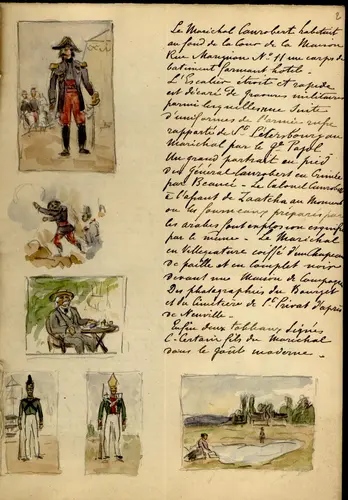 2
Le Maréchal Canrobert habitait
au fond de la Cour de la Maison
Rue Marignan N° 11 un corps de
batiment formant hotel -
L'Escalier étroite et rapide
est décoré de gravures militaires
parmi lesquelles une Suite
d'uniformes de l'armée russe
rapporté de St Petersbourg au
Maréchal par le gal Pajol
Un grand portrait en pied
du Général Canrobert en Crimée
par Beaucé - Le Colonel Canrobert
à l'assaut de Zaatcha au Moment
ou les fourneaux préparés par
les arabes font explosion esquisse
par le même - Le Maréchal
en Villegiature coiffé d'un chapeau
de paille et en complet noir
devant une Maison de Campagne
Des photographies du Bourget
et du Cimetière de St Privat d'après
de Neuville -
Enfin deux tableaux signés
C. Certain fils du Maréchal
dans le goût moderne -